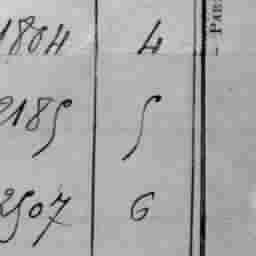 1804 4
2185 5
2507 6